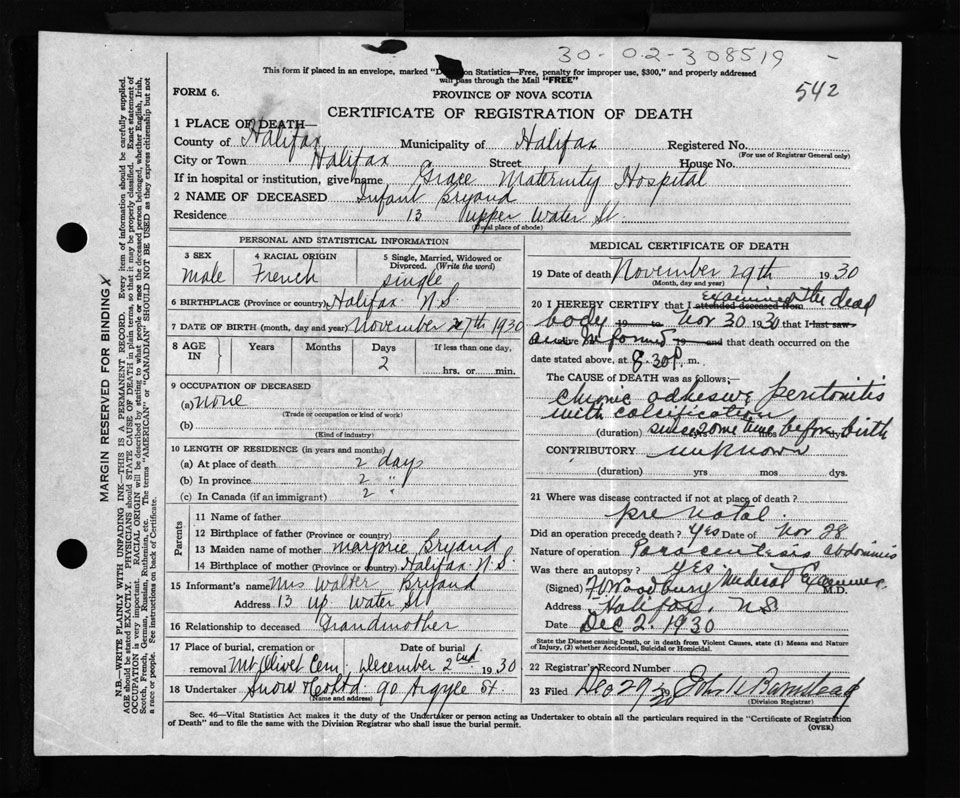 30-02-308519
542
This form if placed in an envelope, marked "D on Statistics—Free, penalty for improper use, $300," and properly addressed
will pass through the Mail "FREE"
FORM 6.
PROVINCE OF NOVA SCOTIA
CERTIFICATE OF REGISTRATION OF DEATH
1 PLACE OF DEATH—
County of Halifax Municipality of Halifax Registered No.
(For use of Registrar General only)
City or Town Halifax Street House No.
If in hospital or institution, give name Grace Maternity Hospital
2 NAME OF DECEASED Infant Bryand
Residence 13 Upper Water St.
(Usual place of abode)
PERSONAL AND STATISTICAL INFORMATION
3 SEX 4 RACIAL ORIGIN 5 Single, Married, Widowed or Divorced. (Write the word)
Male French single
6 BIRTHPLACE (Province or country) Halifax N.S.
7 DATE OF BIRTH (month, day and year) November 27th 1930
8 AGE IN Years Months Days If less than one day,
2 hrs. or min.
9 OCCUPATION OF DECEASED
(a) none
(Trade or occupation or kind of work)
(b)
(Kind of industry)
10 LENGTH OF RESIDENCE (in years and months)
(a) At place of death 2 days
(b) In province 2 "
(c) In Canada (if an immigrant) 2 "
Parents
11 Name of father
12 Birthplace of father (Province or country)
13 Maiden name of mother Marjorie Bryand
14 Birthplace of mother (Province or country) Halifax N.S.
15 Informant's name Mrs Walter Bryand
Address 13 Up Water St
16 Relationship to deceased Grandmother
17 Place of burial, cremation or removal Mt Olivet Cem. Date of burial December 2nd 1930
18 Undertaker Snow & Co Ltd. 90 Argyle St.
(Name and address)
MEDICAL CERTIFICATE OF DEATH
19 Date of death November 29th 1930
(Month, day and year)
20 I HEREBY CERTIFY that I attended deceased from examined the dead
body 19 to Nov 30 1930 that I last saw
alive informed 19 and that death occurred on the
date stated above, at 8.30 P. m.
The CAUSE OF DEATH was as follows:—
Chronic adhesive peritonitis
with calcification
(duration) since some time before birth yrs mos dys
CONTRIBUTORY unknown
(duration) yrs mos. dys.
21 Where was disease contracted if not at place of death?
pre natal.
Did an operation precede death? yes Date of Nov 28
Nature of operation Paracentesis abdominis
Was there an autopsy? yes.
(Signed) Woodbury Medical Examiner M.D.
Address Halifax, N.S.
Date Dec 2. 1930
State the Disease causing Death, or in death from Violent Causes, state (1) Means and Nature
of Injury, (2) whether Accidental, Suicidal or Homicidal.
22 Registrar's Record Number
23 Filed Dec 29/30 John K Barnstead
(Division Registrar)
Sec. 46—Vital Statistics Act makes it the duty of the Undertaker or person acting as Undertaker to obtain all the particulars required in the "Certificate of Registration
of Death" and to file the same with the Division Registrar who shall issue the burial permit.
(OVER)
MARGIN RESERVED FOR BINDING X
N.B.—WRITE PLAINLY WITH UNFADING INK—THIS IS A PERMANENT RECORD. Every item of information should be carefully supplied.
AGE should be stated EXACTLY. PHYSICIANS should STATE CAUSE OF DEATH in plain terms, so that it may be properly classified. Exact statement of
OCCUPATION is very important. RACIAL ORIGIN will be described by stating to what people or race the deceased person belonged, whether English, Irish,
Scotch, French, German, Russian, Ruthenian, etc. The terms "AMERICAN" or "CANADIAN" SHOULD NOT BE USED as they express citizenship but not
a race or people. See instructions on back of Certificate.